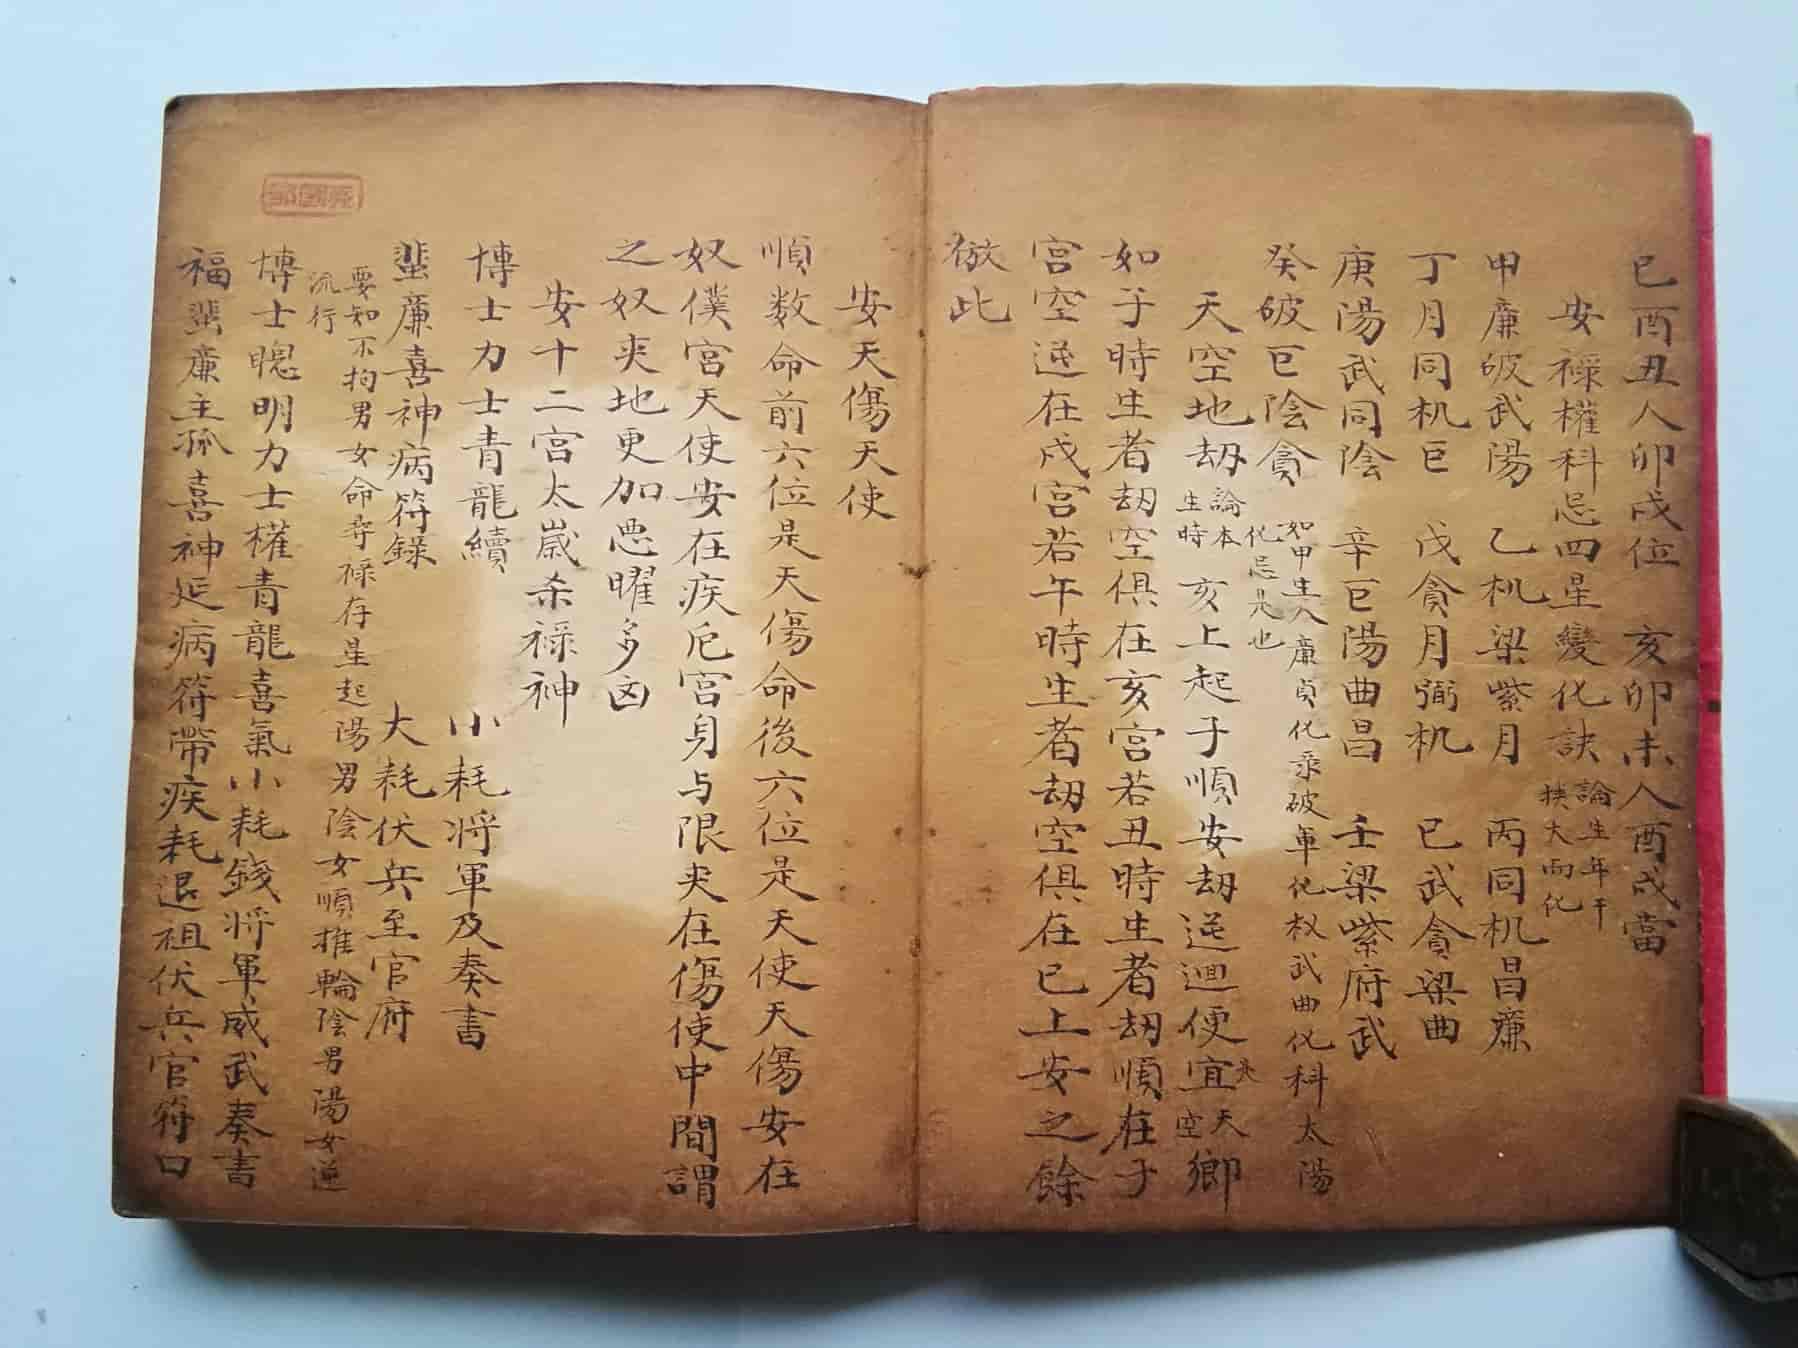 巳酉丑人卯戌位　亥卯未人酉戌當
安祿權科忌四星變化訣
論生年干
挟大而化
甲廉破武陽　乙机梁紫月　丙同机昌廉
丁月同机巨　戊貪月弼机　己武貪梁曲
庚陽武同陰　辛巨陽曲昌　壬梁紫府武
癸破巨陰貪
如甲生人廉貞化彔破軍化权武曲化科太陽
化忌是也
天空地刼
論本
生時
亥上起子順安刼逆迴便宜天鄉
天
空
如子時生者刼空俱在亥宮若丑時生者刼順在子
宮空逆在戌宮若午時生者刼空俱在巳上安之餘
倣此
安天傷天使
順数命前六位是天傷命後六位是天使天傷安在
奴僕宮天使安在疾厄宮身与限夹在傷使中間謂
之奴夾地更加悪曜多凶
安十二宮太歲杀祿神
博士力士青龍續　小耗将軍及奏書
蜚廉喜神病符錄　大耗伏兵至官府
要知不拘男女命尋祿存星起陽男陰女順推輪陰男陽女逆
流行
博士聰明力士權青龍喜氣小耗錢将軍威武奏書
福蜚廉主孤喜神延病符帶疾耗退祖伏兵官符口